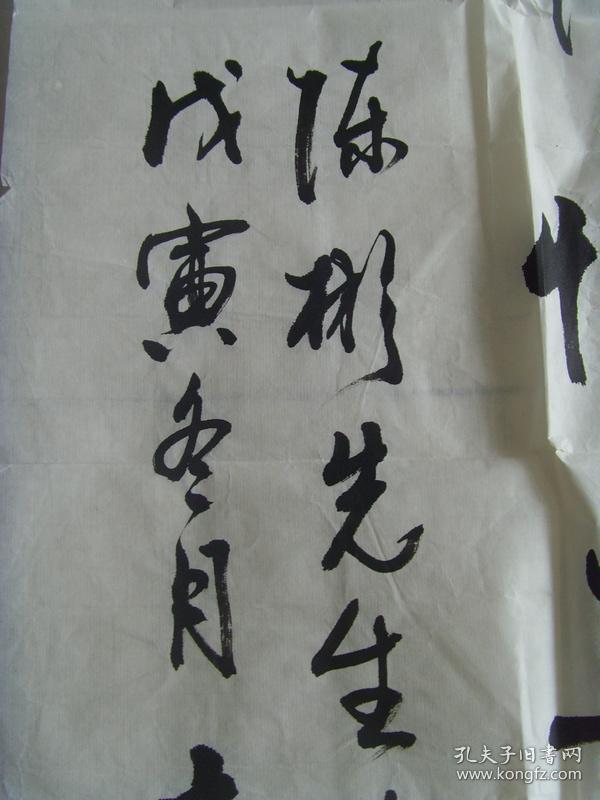 陈彬先生
戊寅冬月
孔夫子旧书网
www.kongfz.com